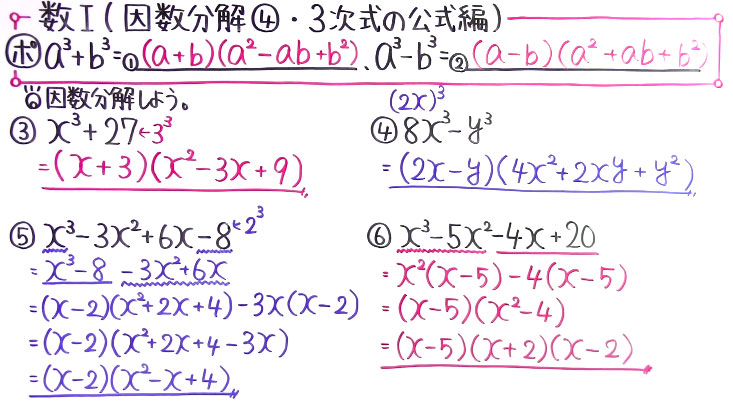 数Ⅰ(因数分解④・3次式の公式編)
ポ a³+b³=①(a+b)(a²-ab+b²)、a³-b³=②(a-b)(a²+ab+b²)
因数分解しよう。
③ x³+27←3³
=(x+3)(x²-3x+9)
(2x)³
④ 8x³-y³
=(2x-y)(4x²+2xy+y²)
⑤ x³-3x²+6x-8←2³
=x³-8 -3x²+6x
=(x-2)(x²+2x+4)-3x(x-2)
=(x-2)(x²+2x+4-3x)
=(x-2)(x²-x+4)
⑥ x³-5x²-4x+20
=x²(x-5)-4(x-5)
=(x-5)(x²-4)
=(x-5)(x+2)(x-2)